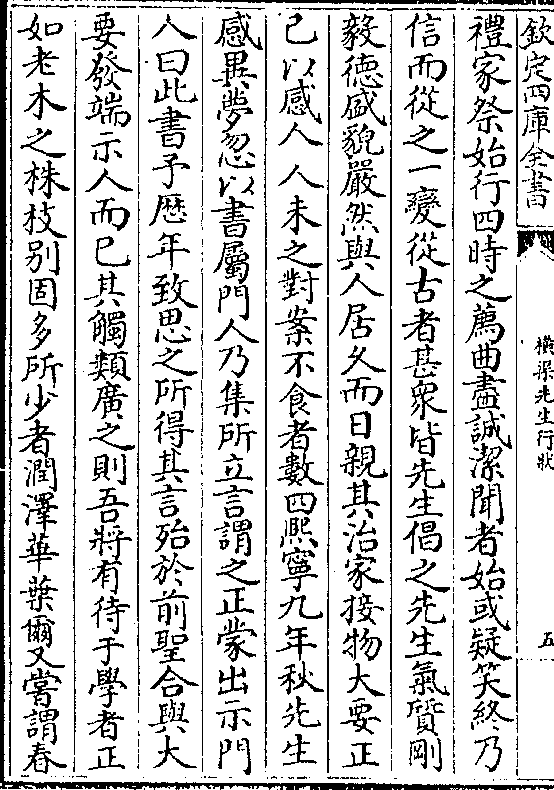 欽定四庫全書
橫渠先生行狀
五
禮家祭始行四時之薦曲盡誠潔聞者始或疑笑終乃
信而從之一變從古者甚衆皆先生倡之先生氣質剛
毅德盛貌嚴然與人居久而日親其治家接物大要正
己以感人人未之對案不食者數四熈寧九年秋先生
感異夢忽以書屬門人乃集所立言謂之正蒙出示門
人曰此書予歴年致思之所得其言殆於前聖合與大
要發端示人而已其觸類廣之則吾將有待于學者正
如老木之株枝别固多所少者潤澤華葉爾又嘗謂春